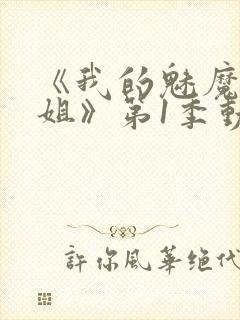 《我的魅魔
姐》第1季動
許你風華绝代